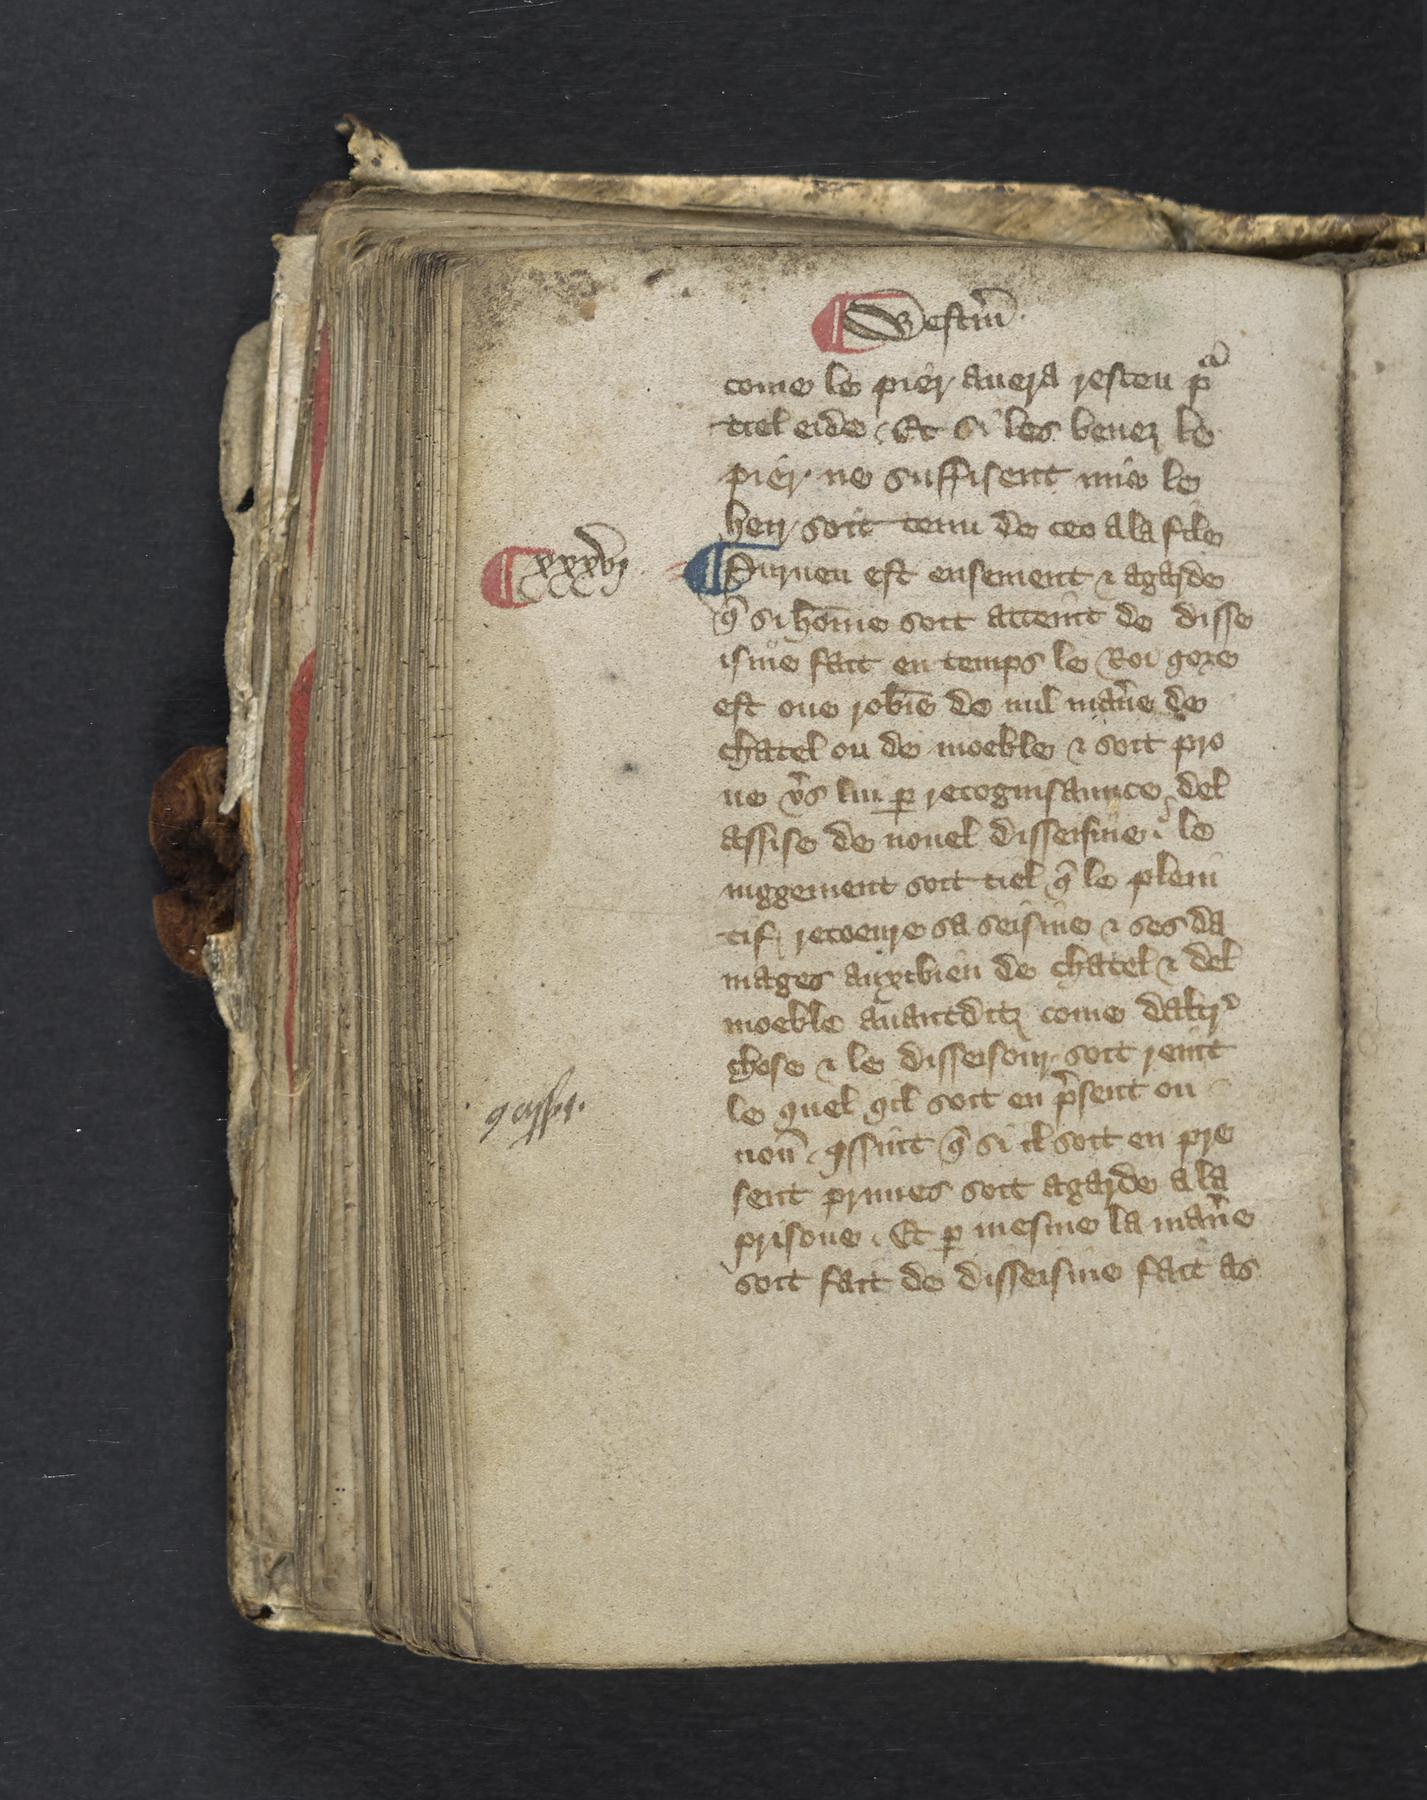 Westm̄
come le pier auera resceu pᵃ
tiel eide. Et si les benez le
pier ne suffisent mie le
heir soit tenu de ceo a la file
xxxvj
Purueu est ensement ⁊ agarde
q̄ si hōme soit atteint de disse
isine fait en temps le Roi qore
est oue robīe de nul man̄e de
chatel ou de moeble ⁊ soit pro
ue v̄s lui ꝑ recognisaunce del
assise de nouel disseisine. le
iuggement soit tiel q̄ le plein
tif recoeure sa seisine ⁊ ses da
mages auxibien de chatel ⁊ del
moeble auantditz come daltrꝰ
chose ⁊ le disseisour soit reint
le quel qil soit en p̄sent ou
noū. issint q̄ si il soit en pre
sent primes soit agarde a la
prisone. Et ꝑ mesme la man̄e
soit fait de disseisine fait as